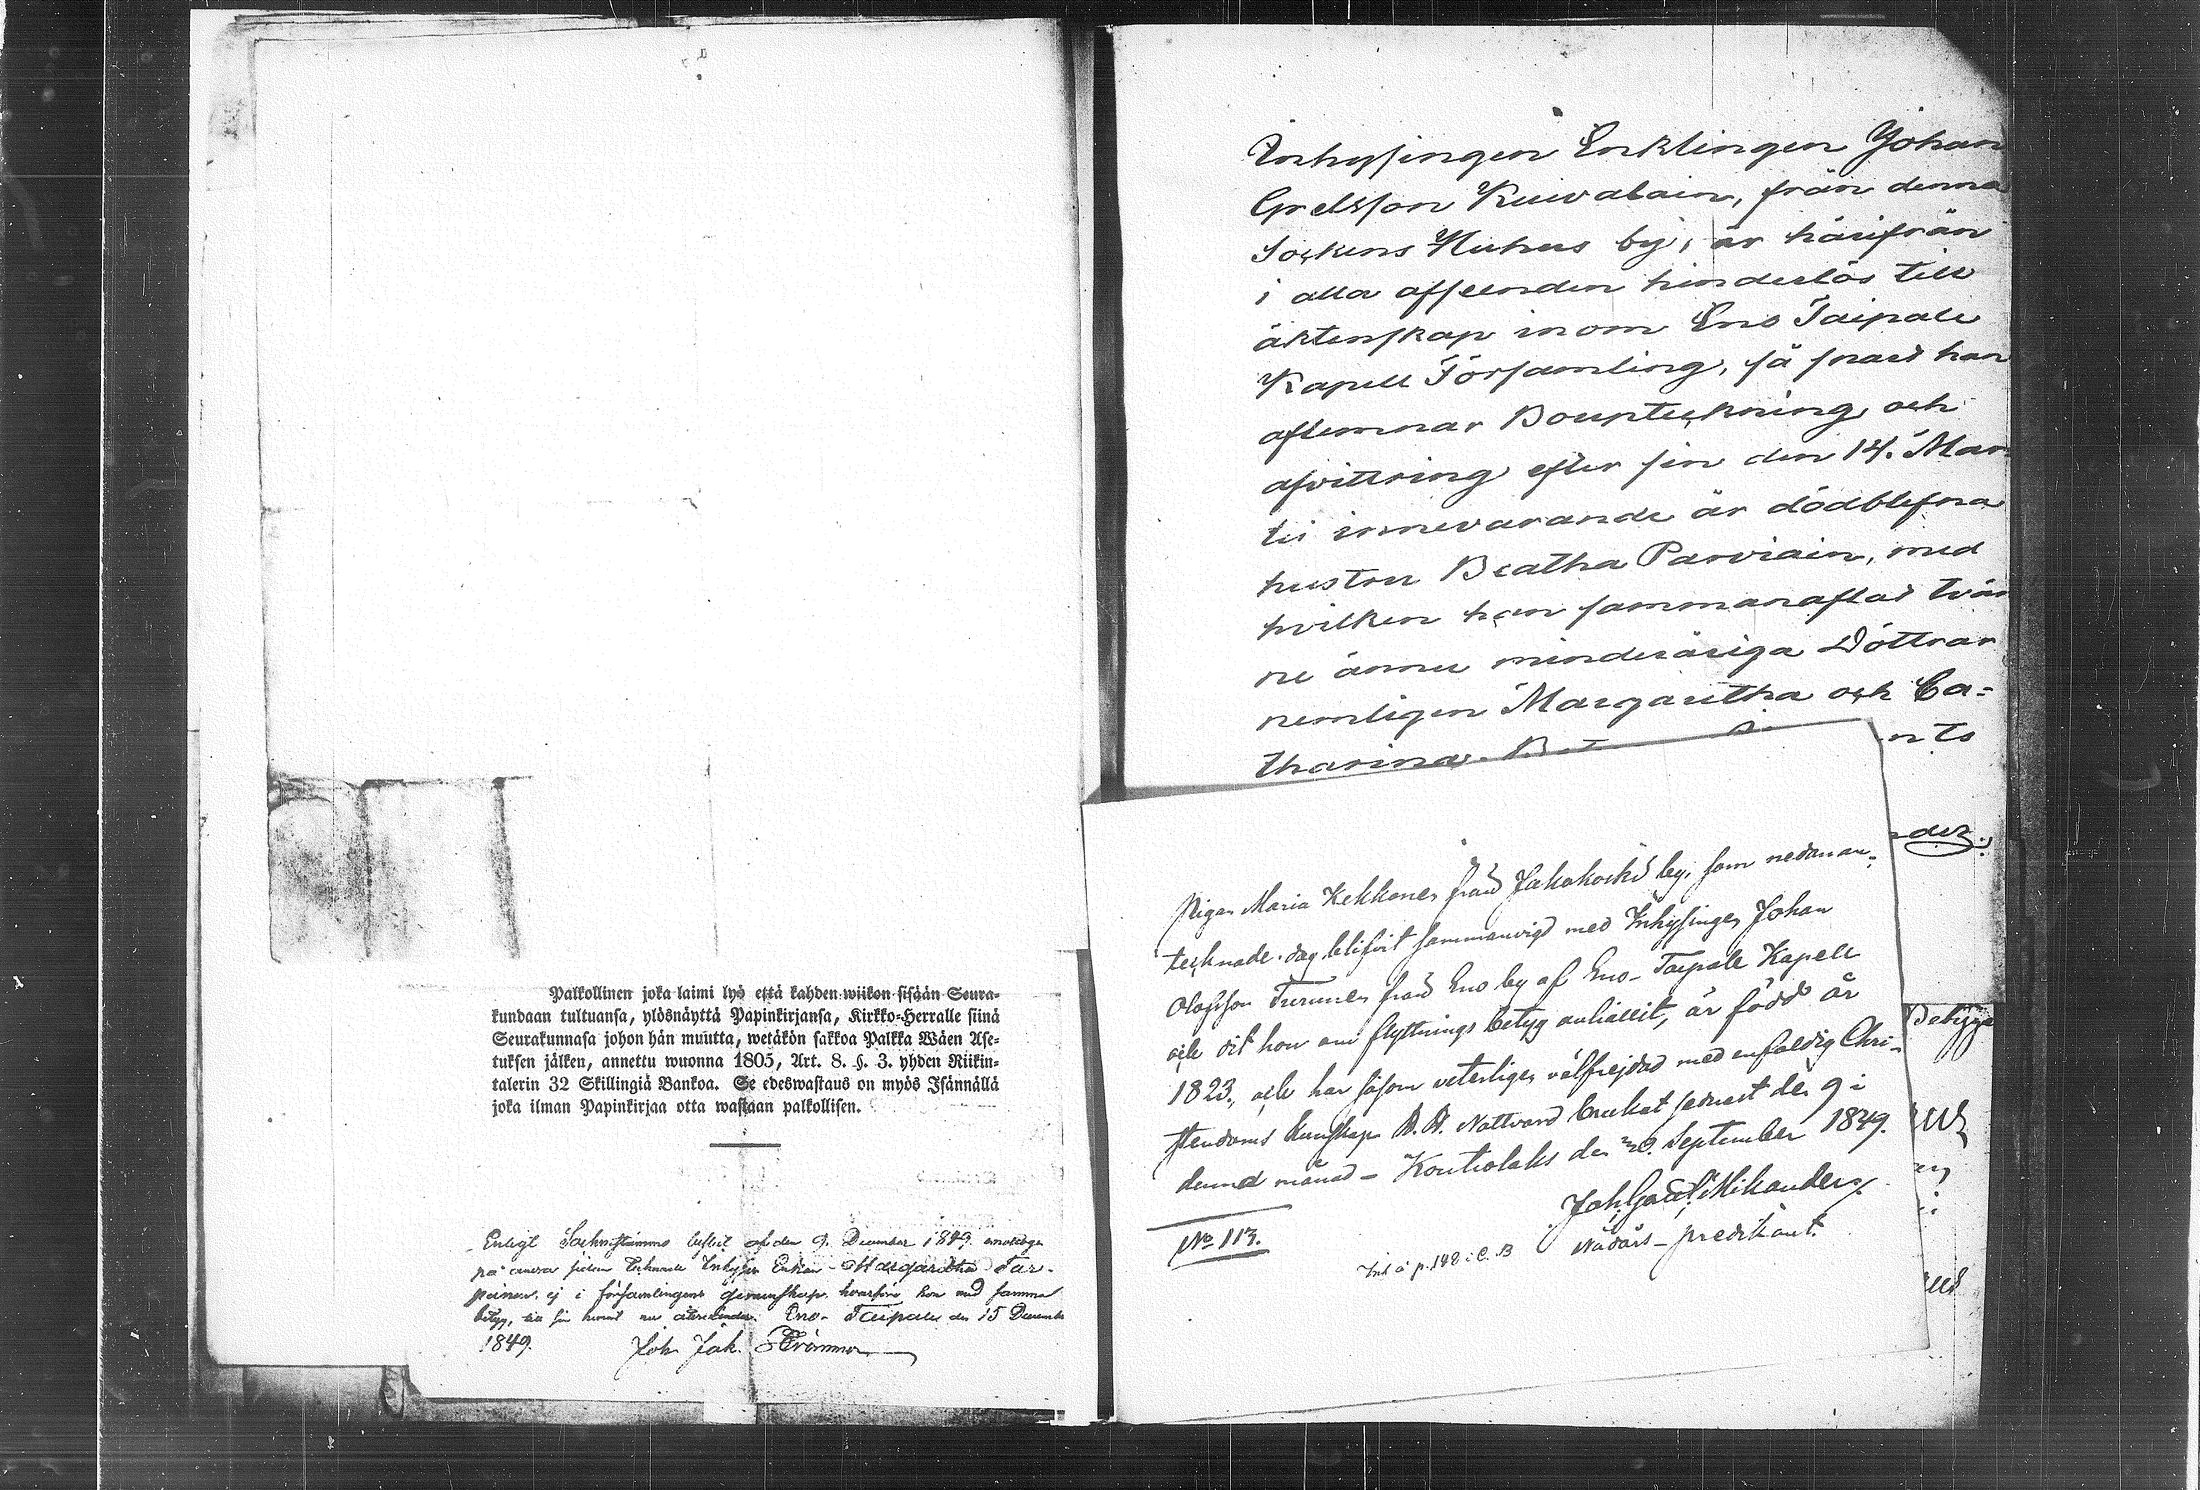 Palkollinen joka laimi lyö että kahden wiikon sisään Seura-
kundaan tultuansa, ylösnäyttä Papinkirjansa, Kirkko-Herralle siinä
Seurakunnasa johon hän muutta, wetäkön sakkoa Palkka Wäen Ase-
tuksen jälken, annettu wuonna 1805, Art. 8. §. 3. yhden Riikin-
talerin 32 Skillingiä Bankoa. Se edeswastaus on myös Isännällä
joka ilman Papinkirjaa otta wastaan palkollisen.
Enligt Sockenstämmo beslut af den 9. December 1849 emottages
på andra sidan tecknade Inhyses Enkan Margaretha Tar-
painen ej i församlingens gemenskap, hvarföre hon med samma
betyg, till sin hemort nu återsändes. Eno-Taipale den 15 December
1849. Joh. Jak. Strömmer
Inhysingen Enklingen Johan
Grelsson Kuivalain, från denna
Sockens Huhus by, är härifrån
i alla afseenden hinderlös till
äktenskap inom Eno Taipale
Kapell Församling, så snart han
aflemnar Boupteckning och
afvittring efter sin den 14. Mar
tii innevarande år dödblefna
hustru Beatha Parviain, med
hvilken han sammanaflat tvän
ne ännu minderåriga Döttrar
nemligen Margaretha och Ca=
tharina.
nts
Pigan Maria Kekkonen från Jakokoski by, som nedanan-
tecknade dag blifvit sammanvigd med Inhysingen Johan
Olofsson Turunen från Eno by af Eno-Taipale Kapell
och dit hon om flyttnings betyg anhållit, är född år
1823, och har såsom veterligen välfrejdad med enfaldig Chri-
stendoms kunskap H. H. Nattvard brukat senast den 9 i
denna månad - Kontiolaks den 20. September 1849.
Joh. Gabr. Mikander
Nådårs-predikant.
No 113.
Inf. å p. 148 i C. B
Betyga